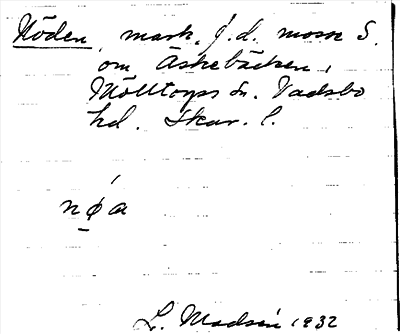 Nöden, mark, f.d. mosse S.
om Äskebäcken,
Mölltorps sn. Vadsbo
hd. Skar. l.
nǿa
L. Madsén 1932